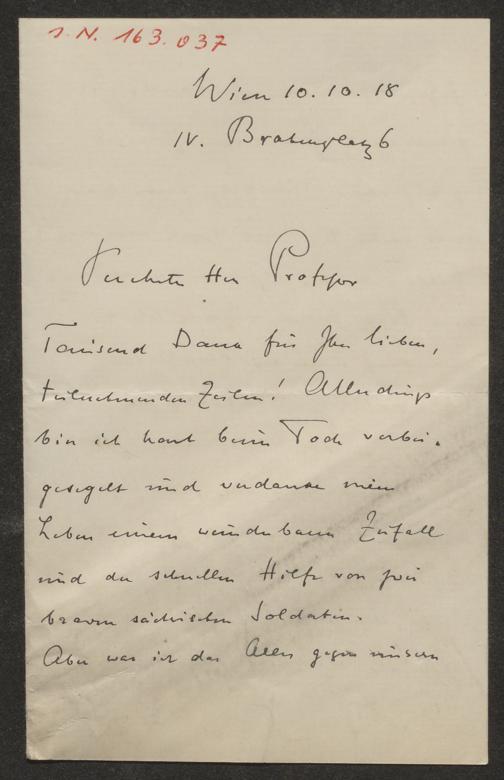 J. N. 163.037
Wien 10. 10. 18
IV. Brahmsplatz 6
Verehrter Herr Professor
Tausend Dank für Ihre lieben,
teilnehmenden Zeilen! Allerdings
bin ich hart beim Tode vorbei-
gesegelt und verdanke mein
Leben einem wunderbaren Zufall
und der schnellen Hilfe von zwei
braven sächsischen Soldaten.
Aber was ist das Alles gegen unsern